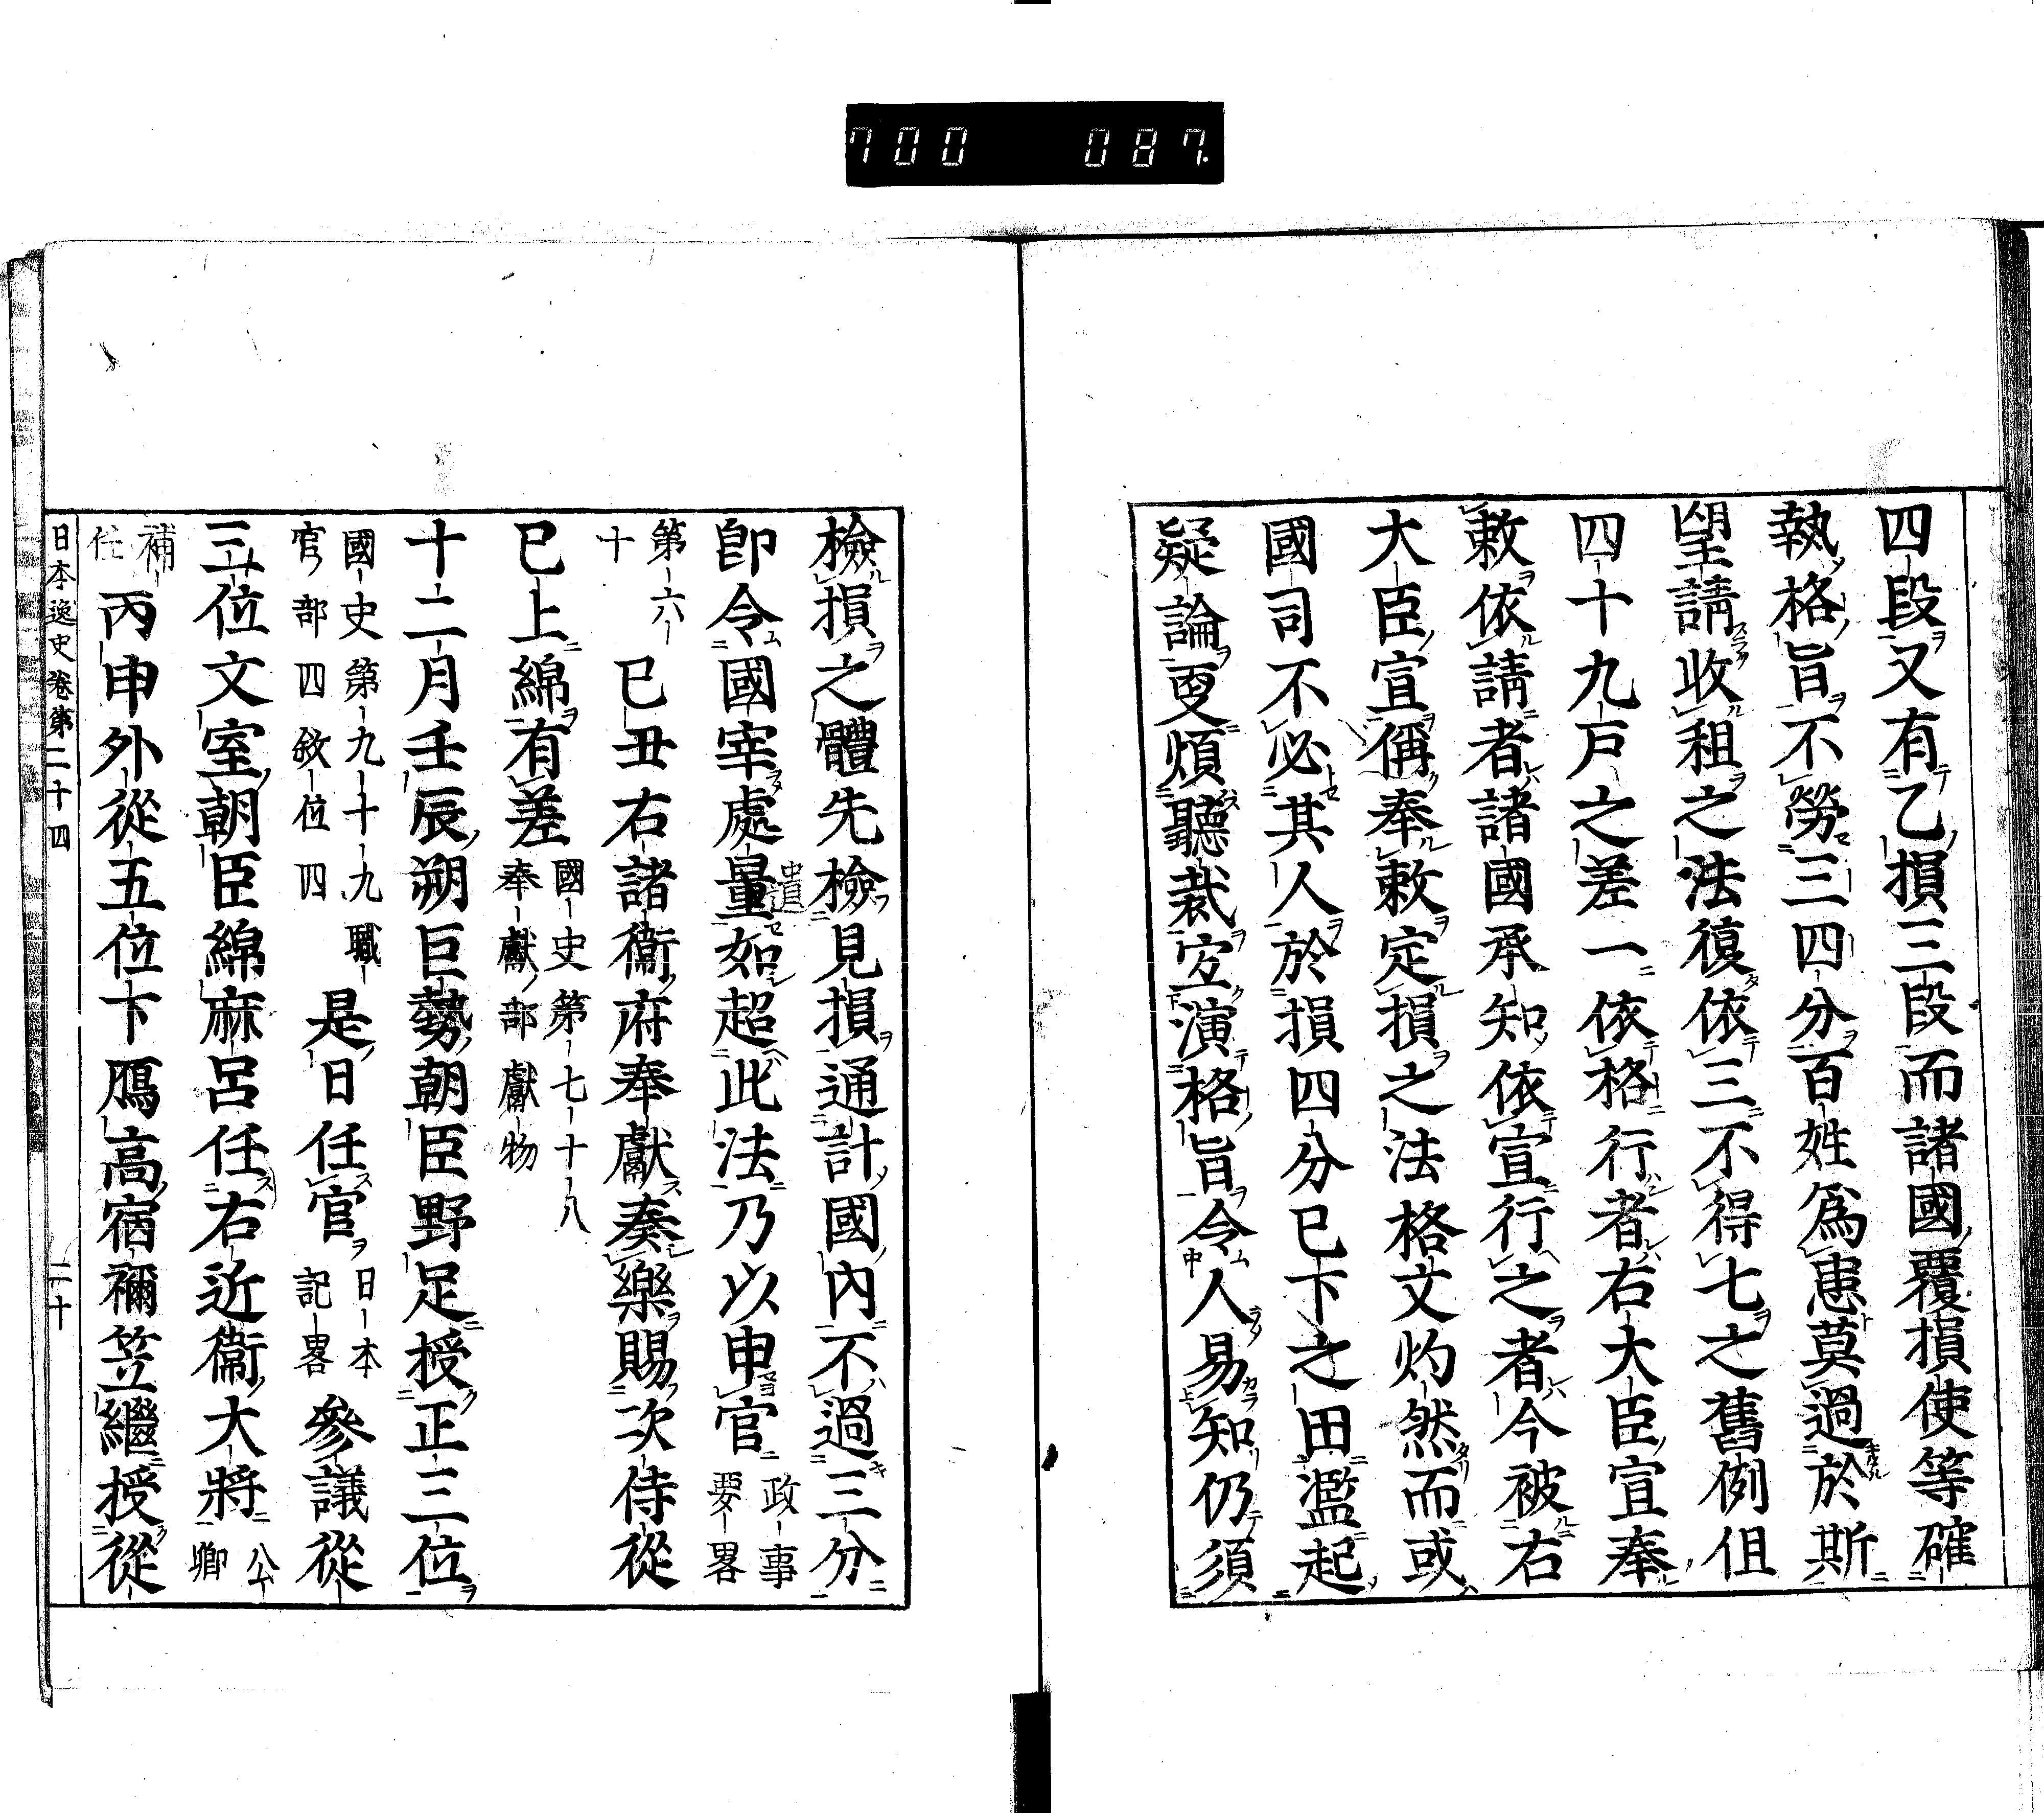 700 087.
四段又有乙損三段而諸國覆損使等確
執格旨不勞三四分百姓爲患莫過於斯
望請收租之法復依三不得七之舊例但
四十九戸之差一依格行者右大臣宣奉
敕依請者諸國承知依宣行之者今被右
大臣宣偁奉敕定損之法格文灼然而或
國司不必其人於損四分已下之田濫起
疑論更煩聽裁宜演格旨令人易知仍須
檢損之體先檢見損通計國內不過三分
卽令國宰處量如超此法乃以申官 政事要畧
第六十 己丑右諸衞府奉獻奏樂賜次侍從
已上綿有差 國史第七十八奉獻部獻物
十二月壬辰朔巨勢朝臣野足授正三位
國史第九十九職官部四敘位四 是日任官 日本記畧 參議從
三位文室朝臣綿麻呂任右近衞大將 公卿
補任 丙申外從五位下鴈高宿禰笠繼授從
日本逸史卷第二十四 二十